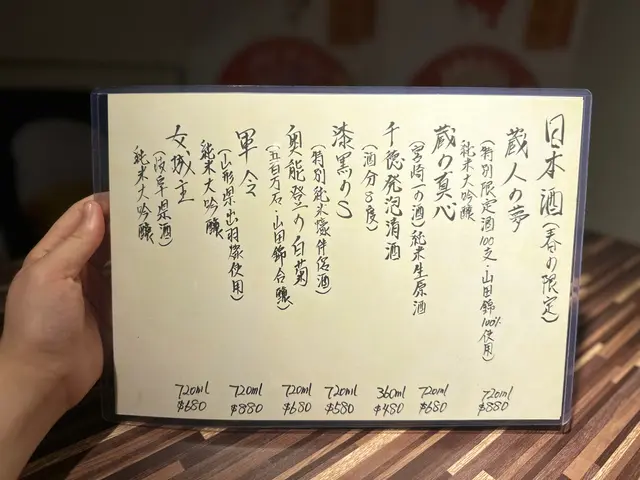 日本酒(春の限定)
蔵人の夢
(特別限定酒100支・山田錦100%使用)
純米大吟釀
720ml
$880
蔵の真心
(宮崎一の酒)純米生原酒
720ml
$680
千穂発泡清酒
(酒分8度)
360ml
$480
漆黒のS
(特別純米濠伴侶酒)
720ml
$580
奥能登の白菊
(五百万石・山田錦合釀)
720ml
$680
軍令
(山形県出羽燦使用)
純米大吟釀
720ml
$880
女城主
(岐阜県酒)
純米大吟釀
720ml
$680